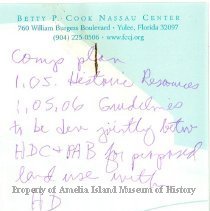 BETTY P. COOK NASSAU CENTER
760 William Burgess Boulevard · Yulee, Florida 32097
(904) 225-0506 · www.fccj.org
Comp plan
1.05. Historic Resources
1.05.06 Guidelines
to be dev jointly betw
HDC + PAB for proposed
land use with
Property of Amelia Island Museum of History
HD